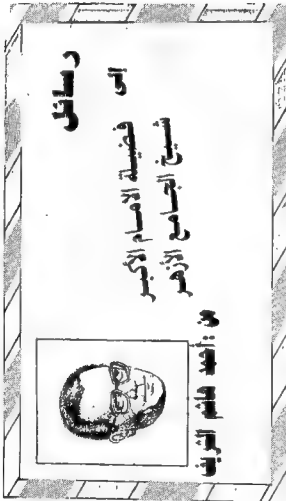 رسائل
الى
فضيلة الامام الأكبر
شيخ الجامع الأزهر
من : أحمد هاشم الشريف